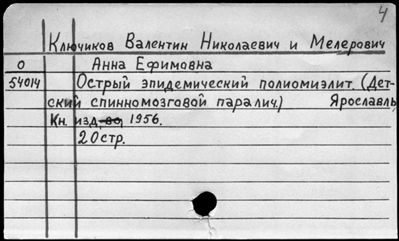 4
Ключиков Валентин Николаевич и Мелерович
0 Анна Ефимовна
54014 Острый эпидемический полиомиэлит. (Дет-
ский спинномозговой паралич.) Ярославль,
Кн. изд-во, 1956.
20 стр.